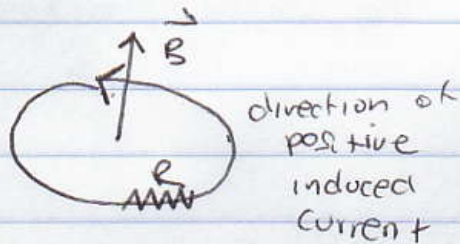 B
direction of
positive
R
induced
current